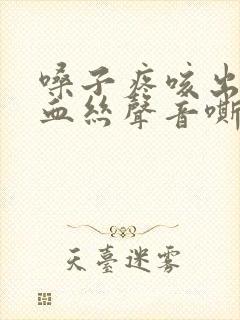 嗓子疼咳出
血丝聲音嘶
天臺迷霧